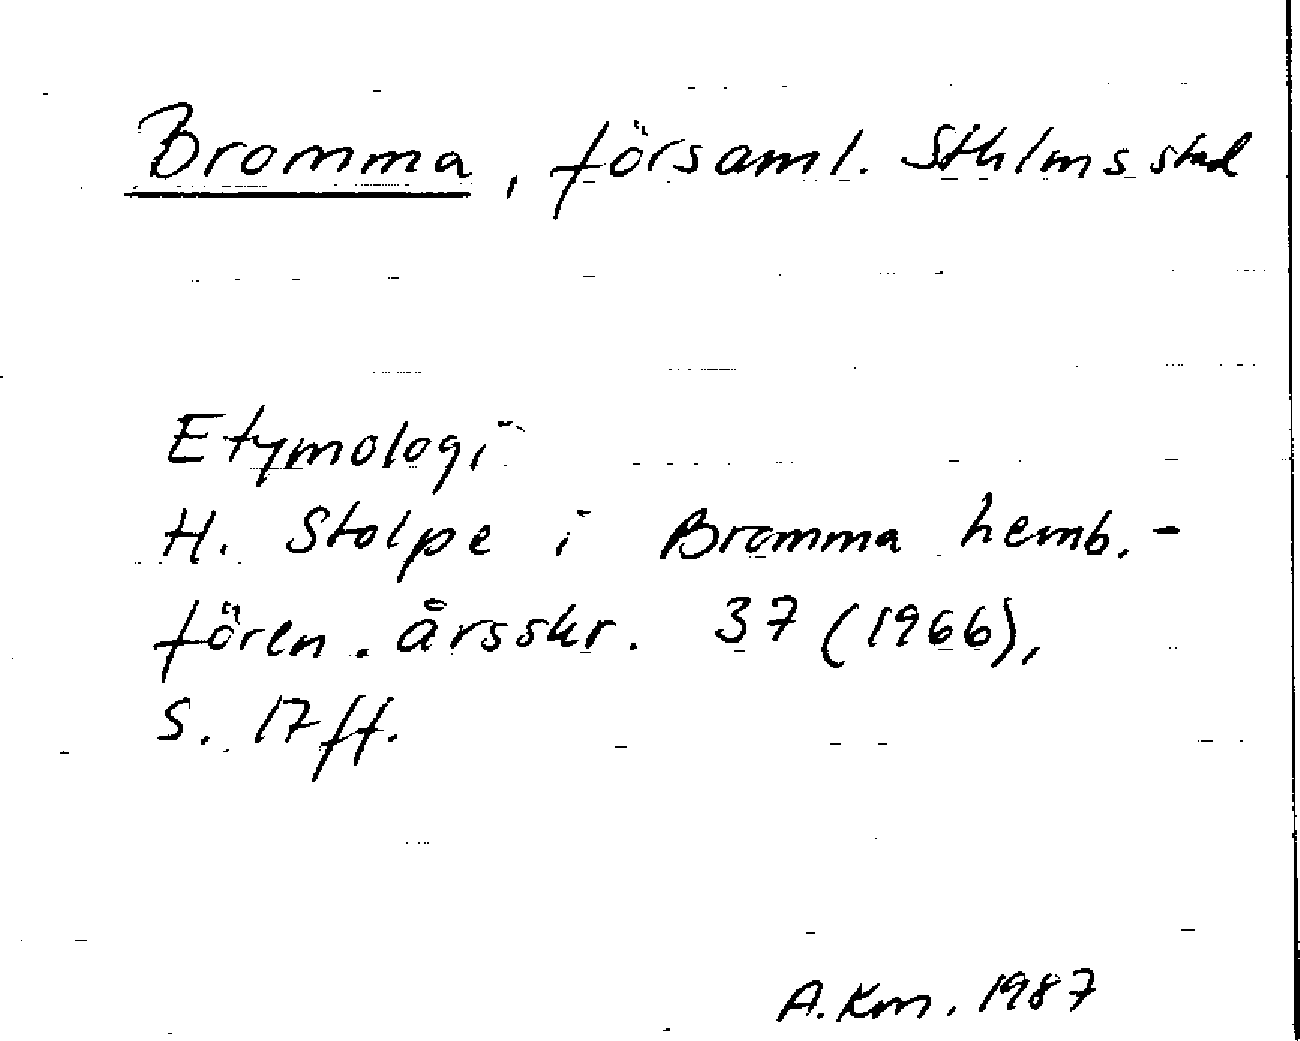 Bromma, församl. Sthlms stad
Etymologi
H. Stolpe i Bromma hemb.-
fören. årsskr. 37 (1966),
s. 17 ff.
A. Km. 1987